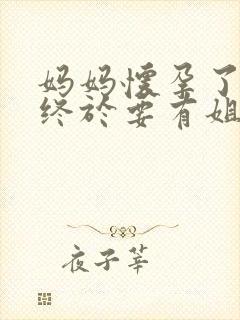 妈妈怀孕了
终於要有姐
夜子莘